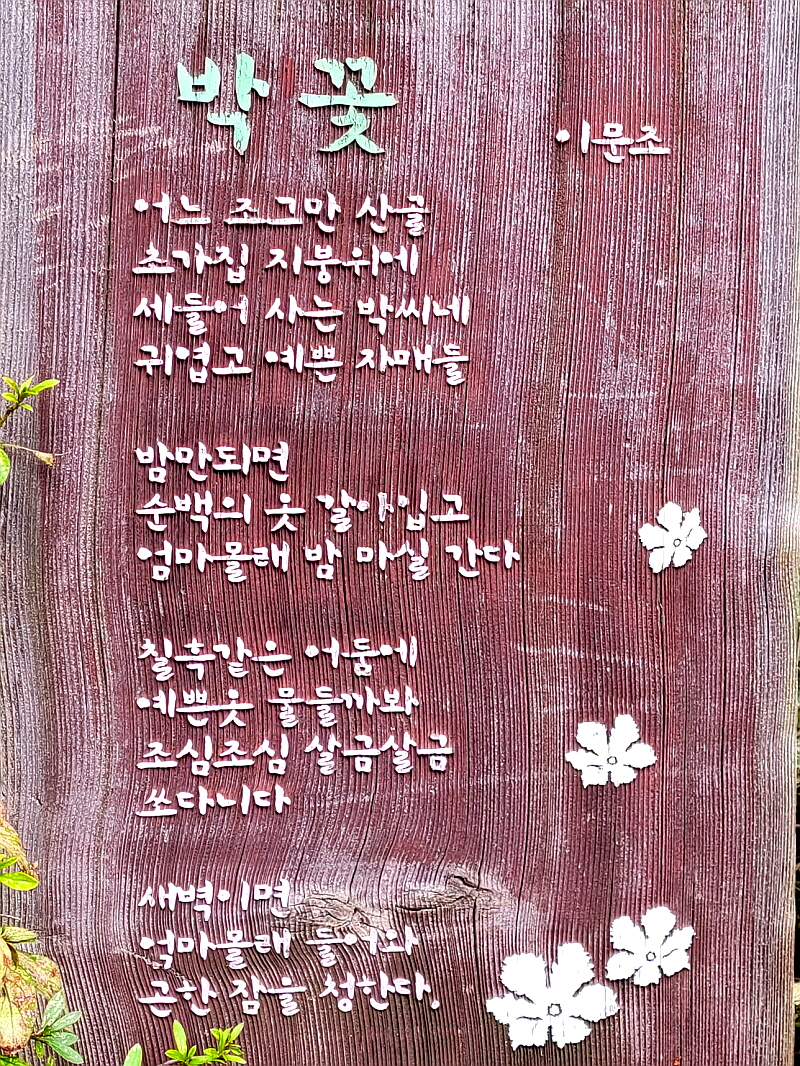 박꽃
이문조
어느 조그만 산골
초가집 지붕위에
세들어 사는 박씨네
귀엽고 예쁜 자매들
밤만되면
순백의 옷 갈아입고
엄마몰래 밤 마실 간다
칠흑같은 어둠에
예쁜옷 물들까봐
조심조심 살금살금
쏘다니다
새벽이면
엄마몰래 들어와
곤한 잠을 청한다.